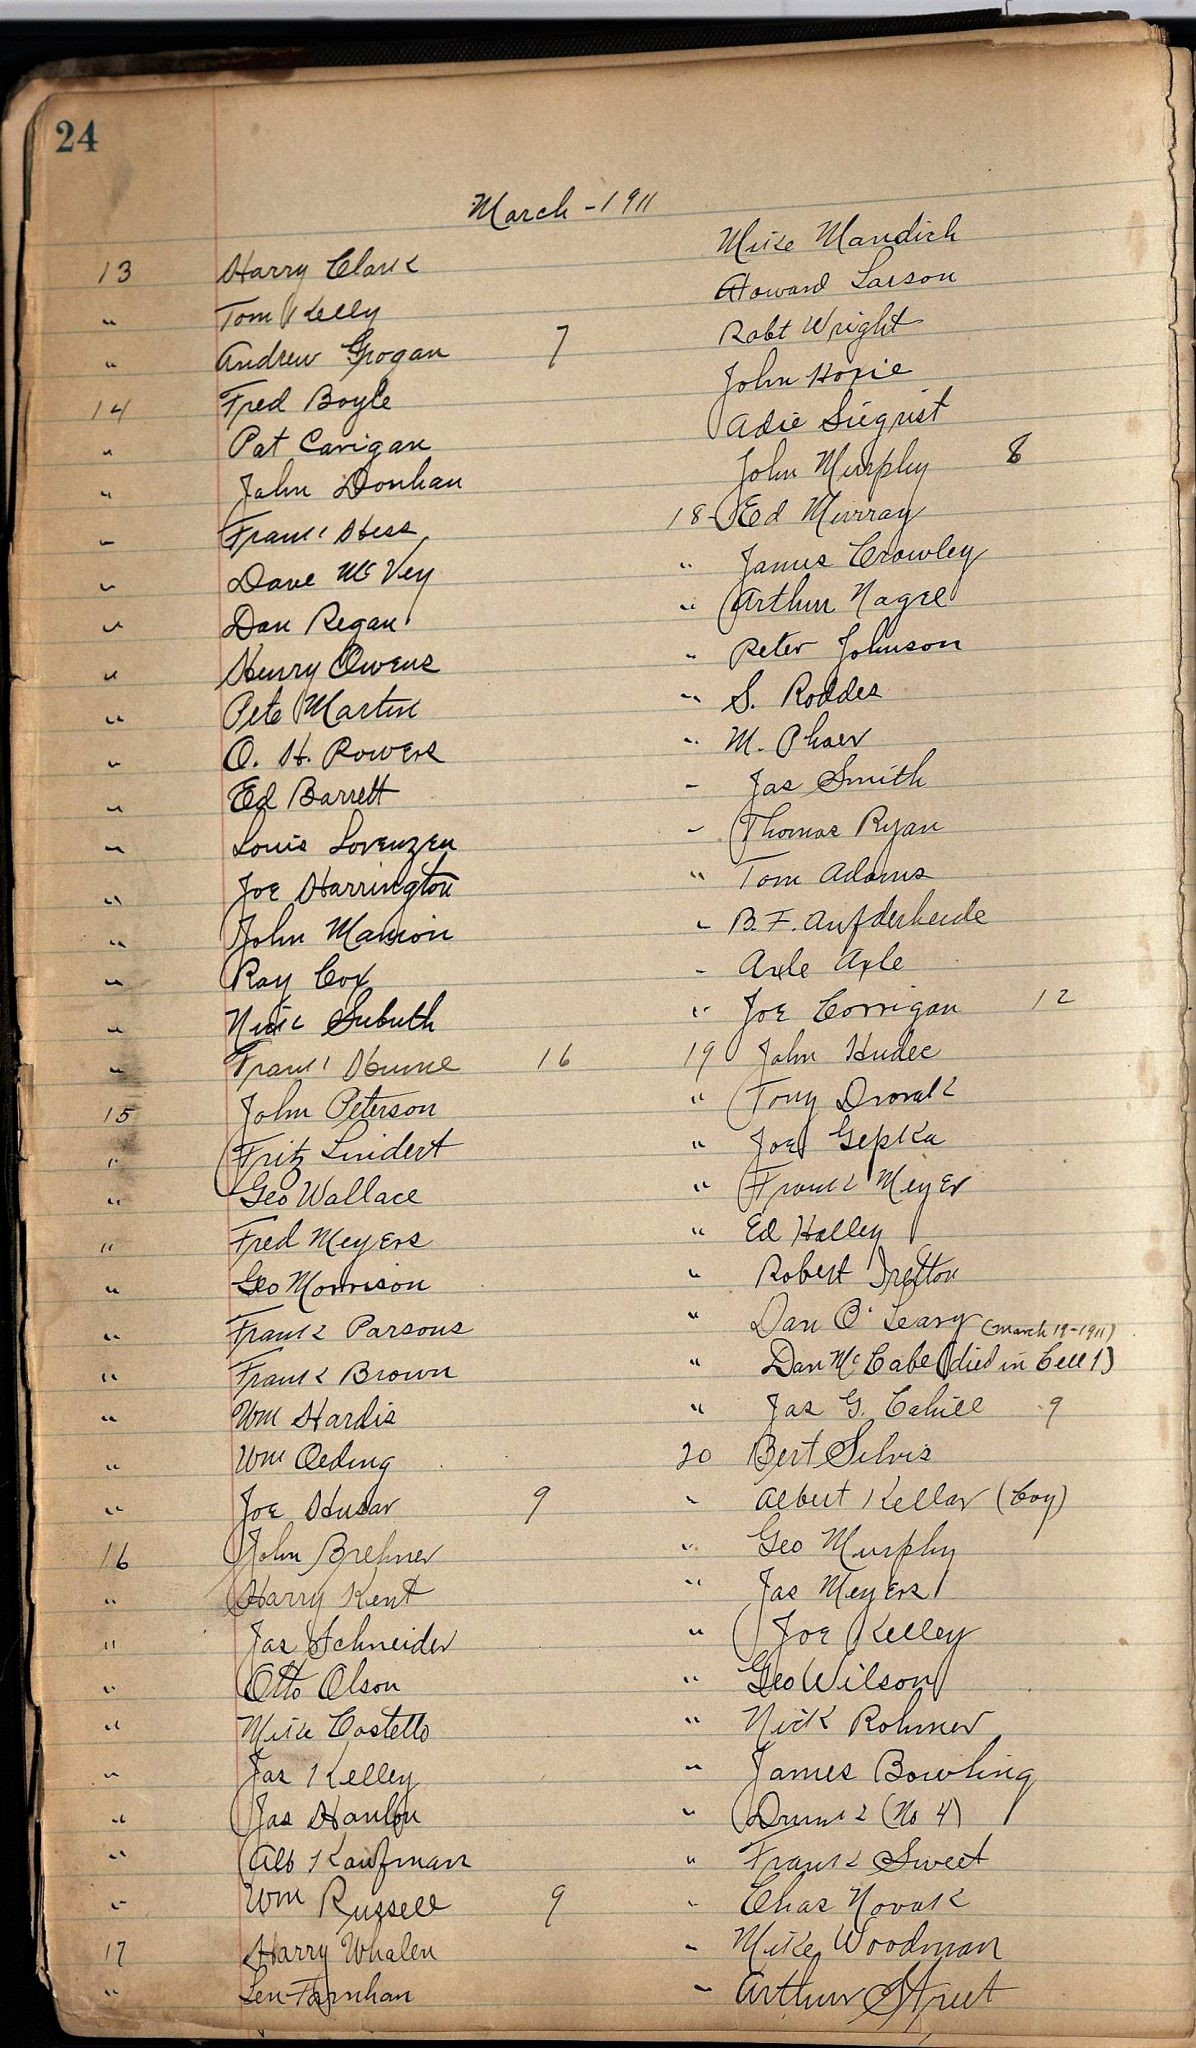 24
March - 1911
13 Harry Clark
" Tom Kelly
" Andrew Grogan 7
14 Fred Boyle
" Pat Carigan
" John Donhan
" Frank Hess
" Dave McVey
" Dan Regan
" Henry Owens
" Pete Martin
" O. H. Powers
" Ed Barrett
" Louis Lorenzen
" Joe Harrington
" John Manion
" Ray Cox
" Nick Subuth
" Frank Hume 16
15 John Peterson
" Fritz Lindert
" Geo Wallace
" Fred Meyers
" Geo Morrison
" Frank Parsons
" Frank Brown
" Wm Hardis
" Wm Oeding
" Joe Husar 9
16 John Brehner
" Harry Kent
" Jas Schneider
" Otto Olson
" Mike Costello
" Jas Kelley
" Jas Hanlon
" Alb Kaufman
" Wm Russell 9
17 Harry Whalen
" Len Farnhan
Mike Mandich
Howard Larson
Robt Wright
John Hoxie
Adie Siegrist
John Murphy 8
18 - Ed Murray
" James Crowley
" Arthur Nagel
" Peter Johnson
" S. Roddes
" M. Phaer
" Jas Smith
" Thomas Ryan
" Tom Adams
" B. F. Aufderheide
" Axle Axle
" Joe Corrigan 12
19 John Hudec
" Tony Dvorak
" Joe Gepka
" Frank Meyer
" Ed Halley
" Robert Trefton
" Dan O'Leary (March 19-1911)
" Dan McCabe (died in Cell 1)
" Jas G. Cahill 9
20 Bert Silvis
" Albert Kellar (Coy)
" Geo Murphy
" Jas Meyers
" Joe Kelley
" Geo Wilson
" Nick Rohmer
" James Bowling
" Drunk (No 4)
" Frank Sweet
" Chas Novak
" Mike Woodman
" Arthur Street